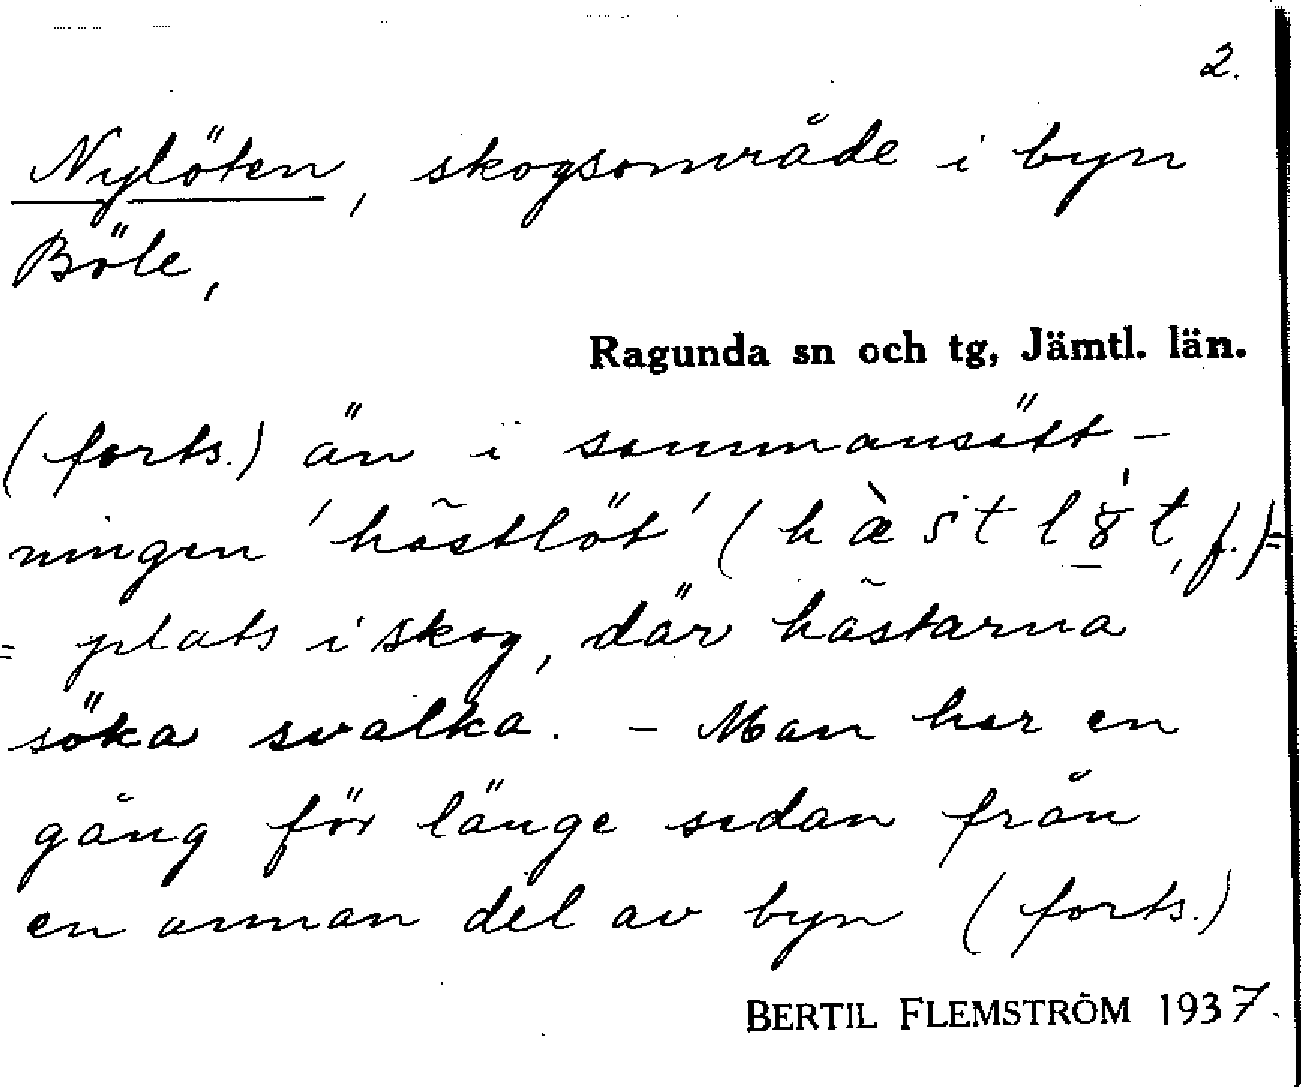 2.
Nylöten, skogsområde i byn
Böle,
Ragunda sn och tg, Jämtl. län.
(forts.) än i sammansätt-
ningen 'hästlöt' (h æ̀ s t l 8̍ t, f.) =
= plats i skog, där hästarna
söka svalka. – Man har en
gång för länge sedan från
en annan del av byn (forts.)
BERTIL FLEMSTRÖM 1937.